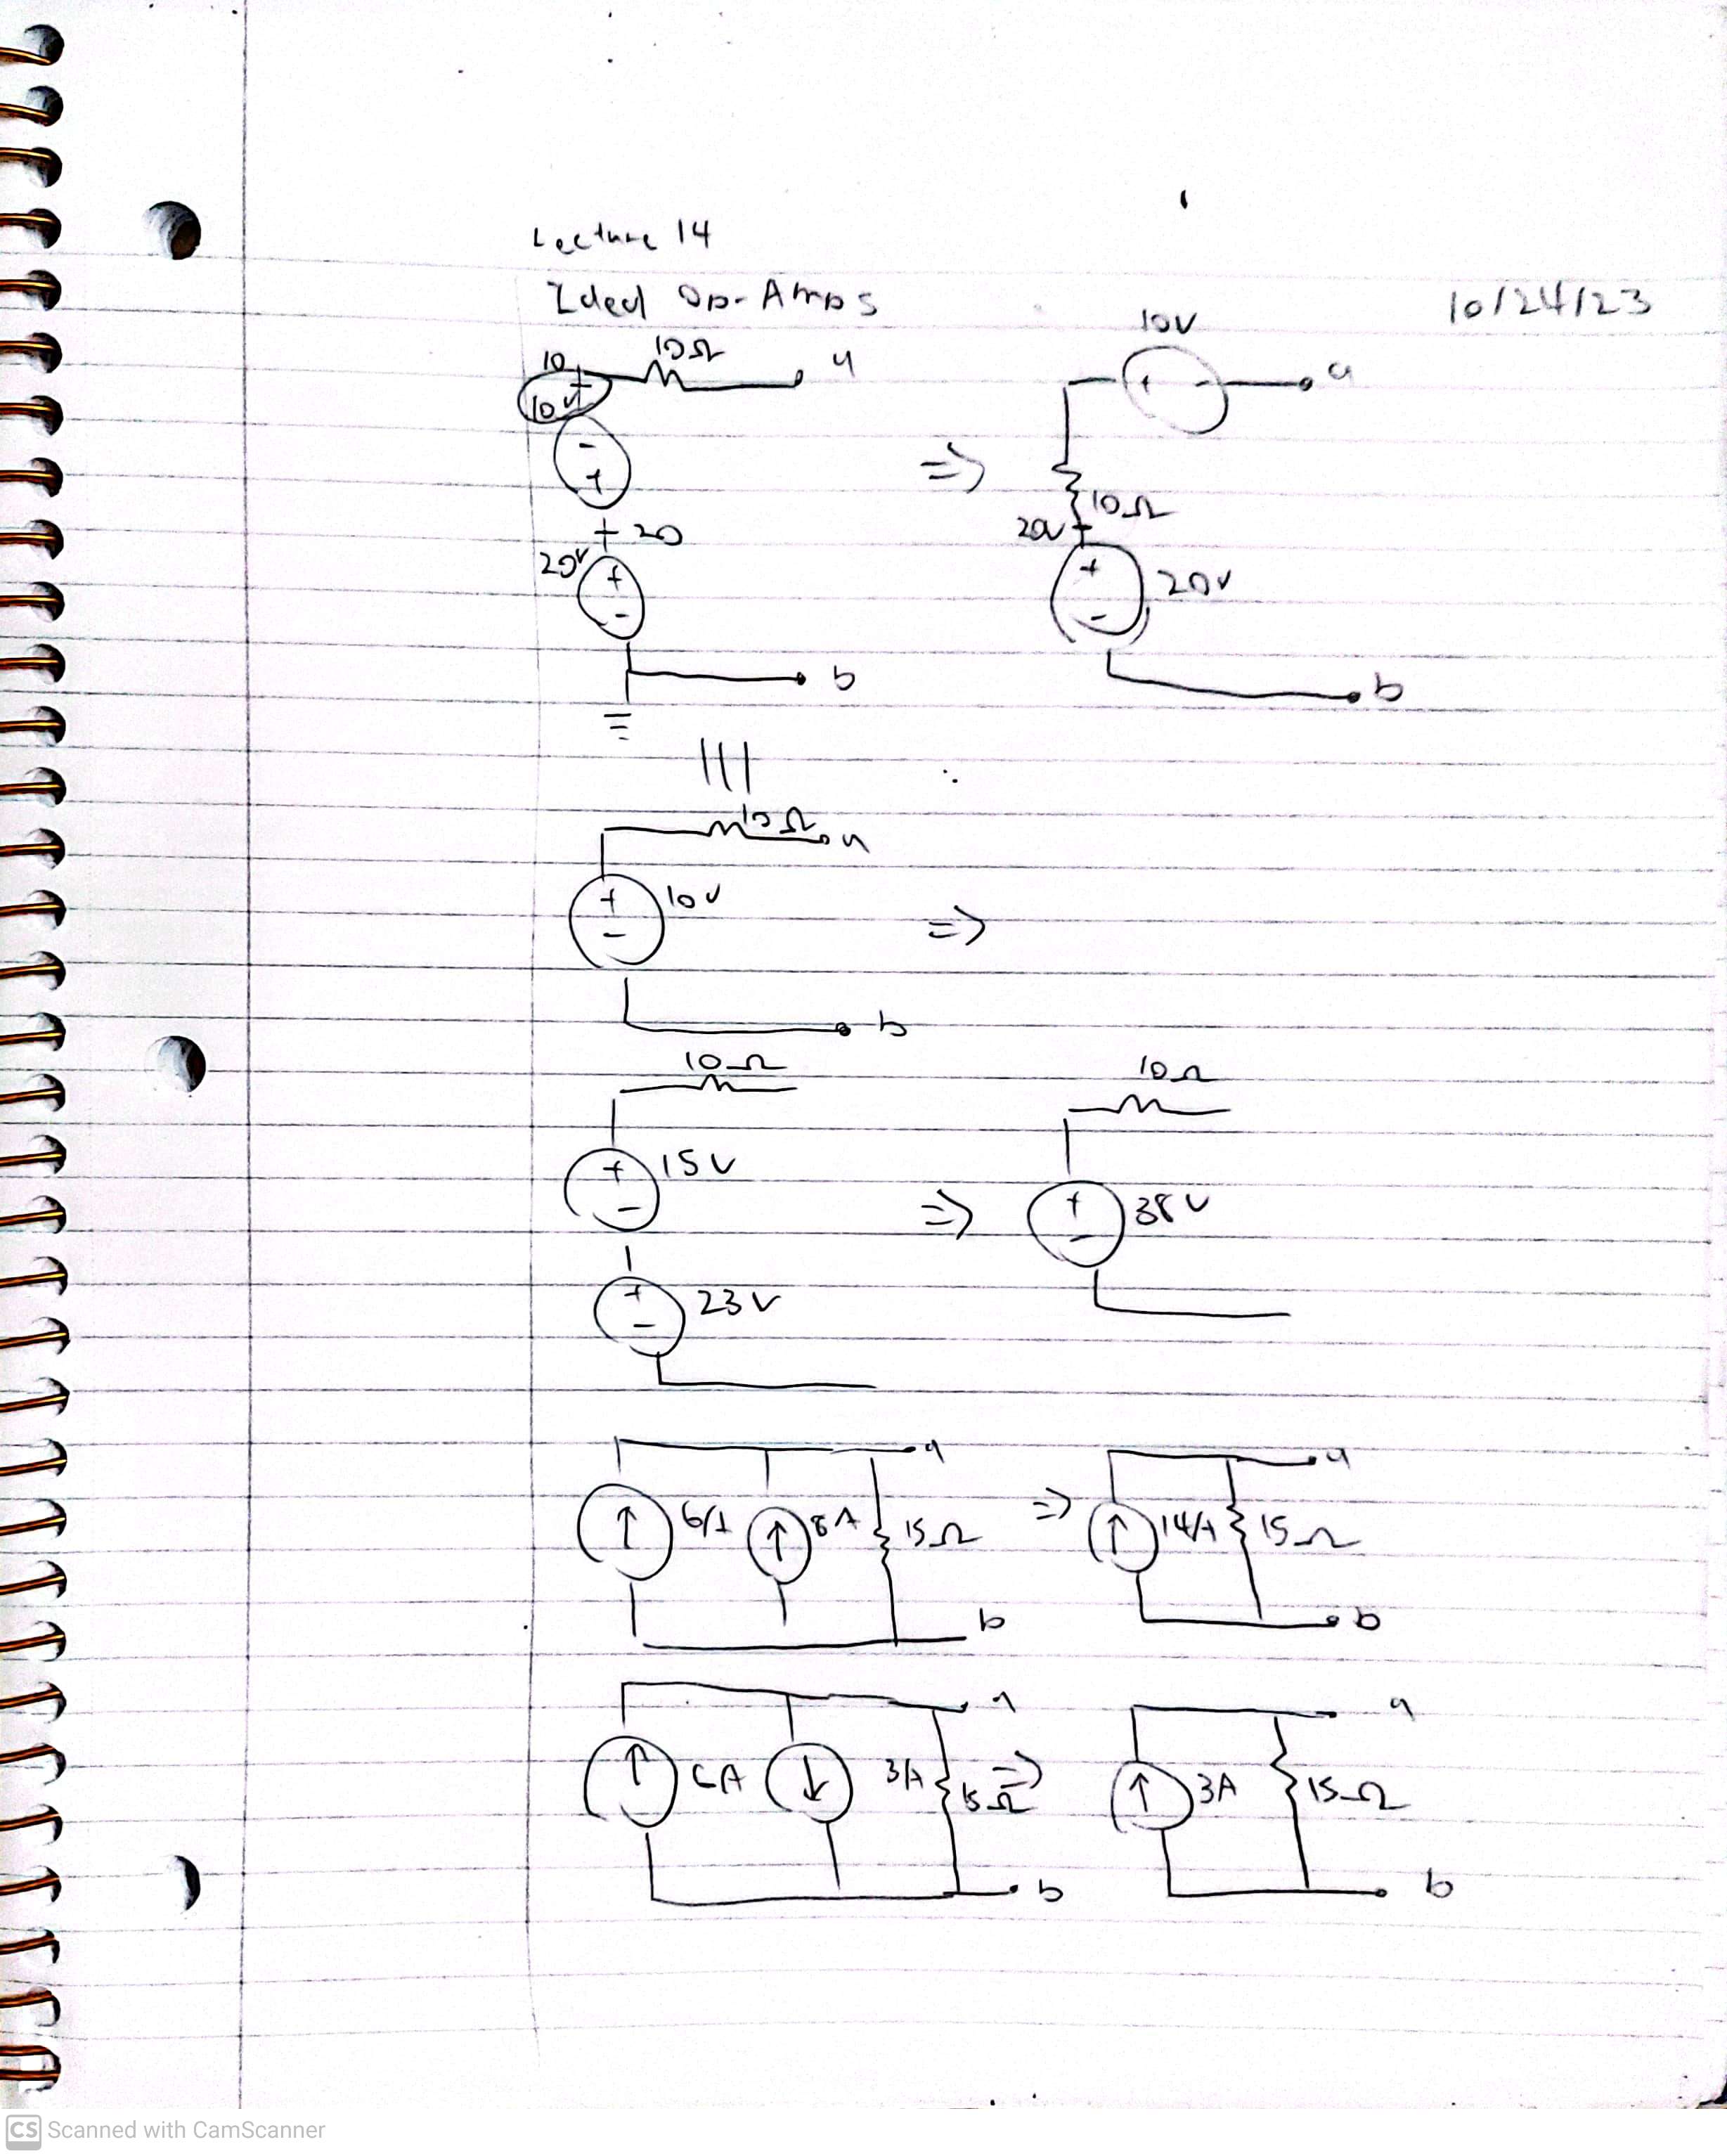 Lecture 14
Ideal Op-Amps
10/24/23
10 10Ω a
10V
- +
+ 20
20V + -
b
10V
+ - a
10Ω
20V +
+ - 20V
b
=>
10Ω a
+ - 10V =>
b
10Ω
+ - 15V
+ - 23V
=>
10Ω
+ - 38V
a
↑ 6A ↑ 8A 15Ω
b
=>
a
↑ 14A 15Ω
b
a
↑ 6A ↓ 3A 15Ω
b
=>
a
↑ 3A 15Ω
b
CS Scanned with CamScanner